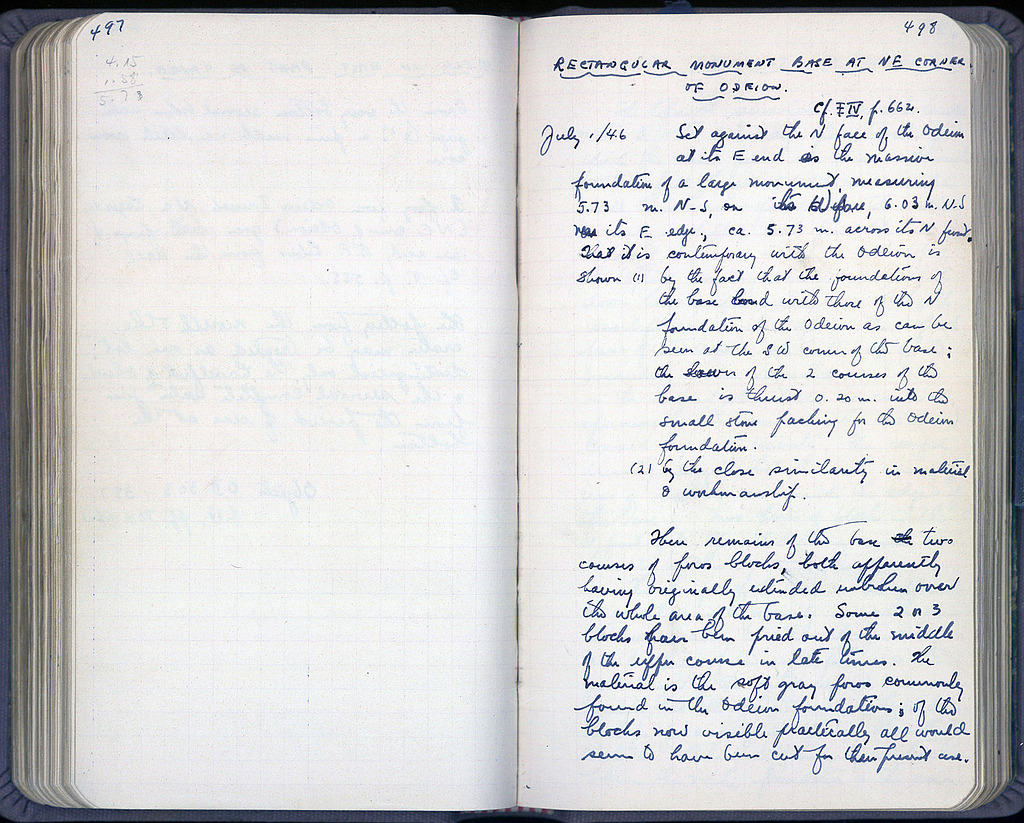 497
4.15
1.58
5.73
498
RECTANGULAR MONUMENT BASE AT NE CORNER
OF ODEION.
Cf. IV, p. 662.
July 1/46 Set against the N face of the Odeion
at its E end is the massive
foundation of a large monument, measuring
5.73 m. N-S, on 6.03 m. N-S
its E edge, ca. 5.73 m. across its N front.
That it is contemporary with the Odeion is
shown (1) by the fact that the foundations of
the base bond with those of the N
foundation of the Odeion as can be
seen at the SW corner of the base;
the lower of the 2 courses of the
base is thrust 0.20 m. into the
small stone packing for the Odeion
foundation.
(2) by the close similarity in material
& workmanship.
There remains of the base two
courses of poros blocks, both apparently
having originally extended unbroken over
the whole area of the base. Some 2 or 3
blocks have been pried out of the middle
of the upper course in late times. The
material is the soft gray poros commonly
found in the Odeion foundations; of the
blocks now visible practically all would
seem to have been cut for their present use.